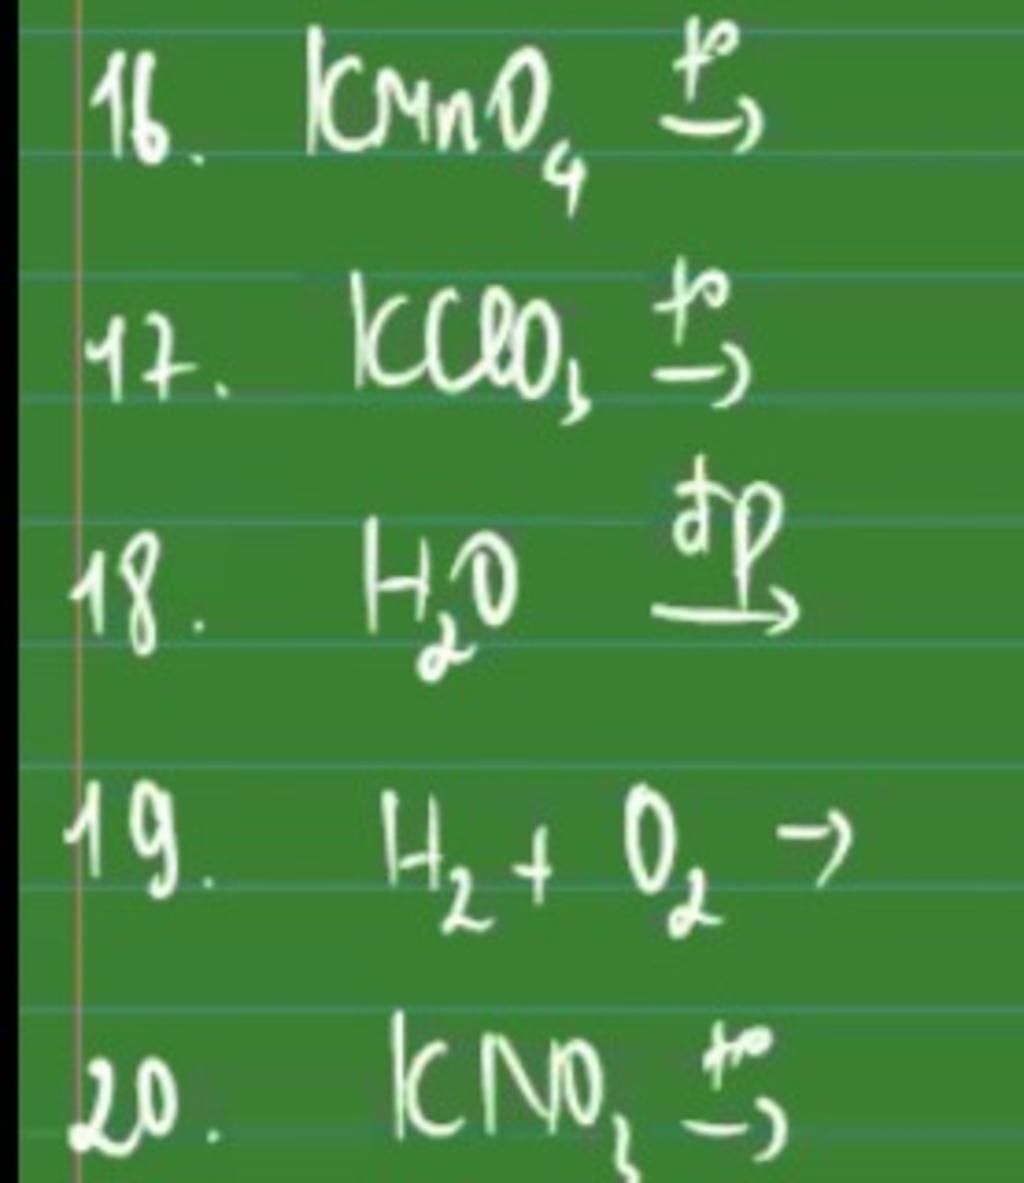 16. KMnO₄ t° →
17. KClO₃ t° →
18. H₂O đp →
19. H₂ + O₂ →
20. KNO₃ t° →